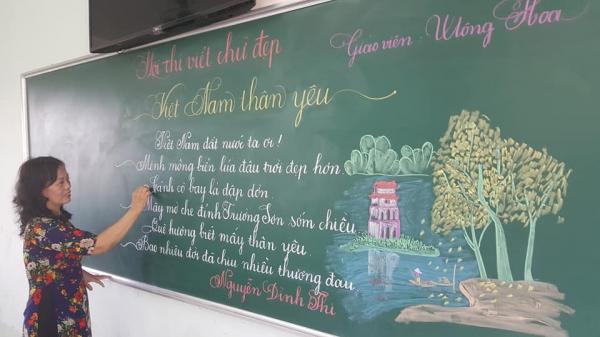 Hội thi viết chữ đẹp
Giáo viên : Hoa
Việt Nam thân yêu
Việt Nam đất nước ta ơi !
Mênh mông biển lúa đâu trời đẹp hơn
Cánh cò bay lả dập dờn
Mây mờ che đỉnh Trường Sơn sớm chiều
Quê hương biết mấy thân yêu
Bao nhiêu đời đã chịu nhiều thương đau
Nguyễn Đình Thi